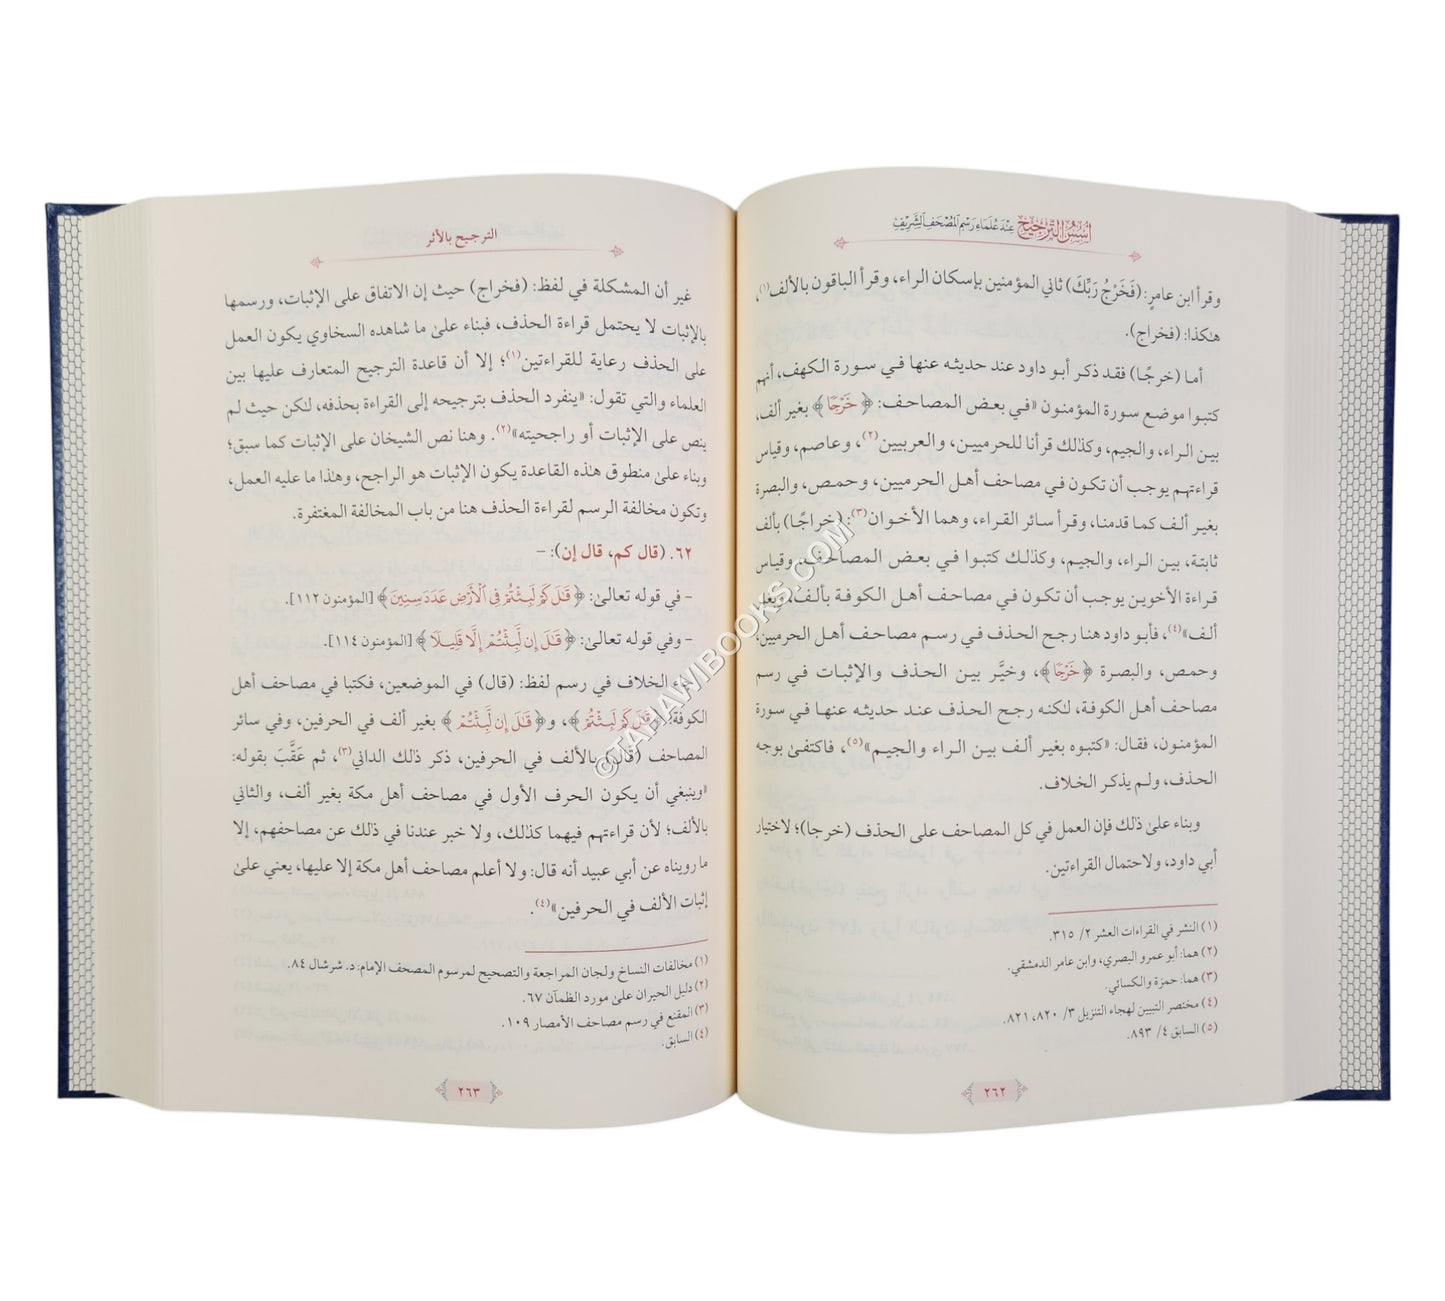 أسس الترجيح عند علماء رسم المصحف الشريف
وقرأ ابن عامرٍ: (فَخَرْجُ رَبِّكَ) ثاني المؤمنين بإسكان الراء، وقرأ الباقون بالألف(١)،
هكذا: (فخراج).
أما (خرجًا) فقد ذكر أبو داود عند حديثه عنها في سورة الكهف، أنهم
كتبوا موضع سورة المؤمنون «في بعض المصاحف: ﴿خَرْجًا﴾ بغير ألف،
بين الراء، والجيم، وكذلك قرأنا للحرميين، والعربيين(٢)، وعاصم، وقياس
قراءتهم يوجب أن تكون في مصاحف أهل الحرميين، وحمص، والبصرة
بغير ألف كما قدمنا، وقرأ سائر القراء، وهما الأخوان(٣): (خراجًا) بألف
ثابتة، بين الراء، والجيم، وكذلك كتبوا في بعض المصاحف، وقياس
قراءة الأخوين يوجب أن تكون في مصاحف أهل الكوفة بألف، وبغير
ألف»(٤)، فأبو داود هنا رجح الحذف في رسم مصاحف أهل الحرميين،
وحمص، والبصرة ﴿خَرْجًا﴾، وخيَّر بين الحذف والإثبات في رسم
مصاحف أهل الكوفة، لكنه رجح الحذف عند حديثه عنها في سورة
المؤمنون، فقال: «كتبوه بغير ألف بين الراء والجيم»(٥)، فاكتفى بوجه
الحذف، ولم يذكر الخلاف.
وبناء على ذلك فإن العمل في كل المصاحف على الحذف (خرجا)؛ لاختيار
أبي داود، ولاحتمال القراءتين.
(١) النشر في القراءات العشر ٢/ ٣١٥.
(٢) هما: أبو عمرو البصري، وابن عامر الدمشقي.
(٣) هما: حمزة والكسائي.
(٤) مختصر التبيين لهجاء التنزيل ٣/ ٨٢٠، ٨٢١.
(٥) السابق ٤/ ٨٩٣.
٢٦٢
الترجيح بالأثر
غير أن المشكلة في لفظ: (فخراج) حيث إن الاتفاق على الإثبات، ورسمها
بالإثبات لا يحتمل قراءة الحذف، فبناء على ما شاهده السخاوي يكون العمل
على الحذف رعاية للقراءتين(١)؛ إلا أن قاعدة الترجيح المتعارف عليها بين
العلماء والتي تقول: «ينفرد الحذف بترجيحه إلى القراءة بحذفه، لكن حيث لم
ينص على الإثبات أو راجحيته»(٢). وهنا نص الشيخان على الإثبات كما سبق؛
وبناء على منطوق هذه القاعدة يكون الإثبات هو الراجح، وهذا ما عليه العمل،
وتكون مخالفة الرسم لقراءة الحذف هنا من باب المخالفة المغتفرة.
٦٢. (قال كم، قال إن): –
– في قوله تعالى: ﴿قَٰلَ كَمْ لَبِثْتُمْ فِي الْأَرْضِ عَدَدَ سِنِينَ﴾ [المؤمنون ١١٢].
– وفي قوله تعالى: ﴿قَٰلَ إِن لَّبِثْتُمْ إِلَّا قَلِيلًا﴾ [المؤمنون ١١٤].
جاء الخلاف في رسم لفظ: (قال) في الموضعين، فكتبا في مصاحف أهل
الكوفة: ﴿قَٰلَ كَمْ لَبِثْتُمْ﴾، و﴿قَٰلَ إِن لَّبِثْتُمْ﴾ بغير ألف في الحرفين، وفي سائر
المصاحف (قال) بالألف في الحرفين، ذكر ذلك الداني(٣)، ثم عَقَّبَ بقوله:
«وينبغي أن يكون الحرف الأول في مصاحف أهل مكة بغير ألف، والثاني
بالألف؛ لأن قراءتهم فيهما كذلك، ولا خبر عندنا في ذلك عن مصاحفهم، إلا
ما رويناه عن أبي عبيد أنه قال: ولا أعلم مصاحف أهل مكة إلا عليها، يعني على
إثبات الألف في الحرفين»(٤).
(١) مخالفات النساخ ولجان المراجعة والتصحيح لمرسوم المصحف الإمام: د. شرشال ٨٤.
(٢) دليل الحيران على مورد الظمآن ٦٧.
(٣) المقنع في رسم مصاحف الأمصار ١٠٩.
(٤) السابق.
٢٦٣
©TAHAWIBOOKS.COM